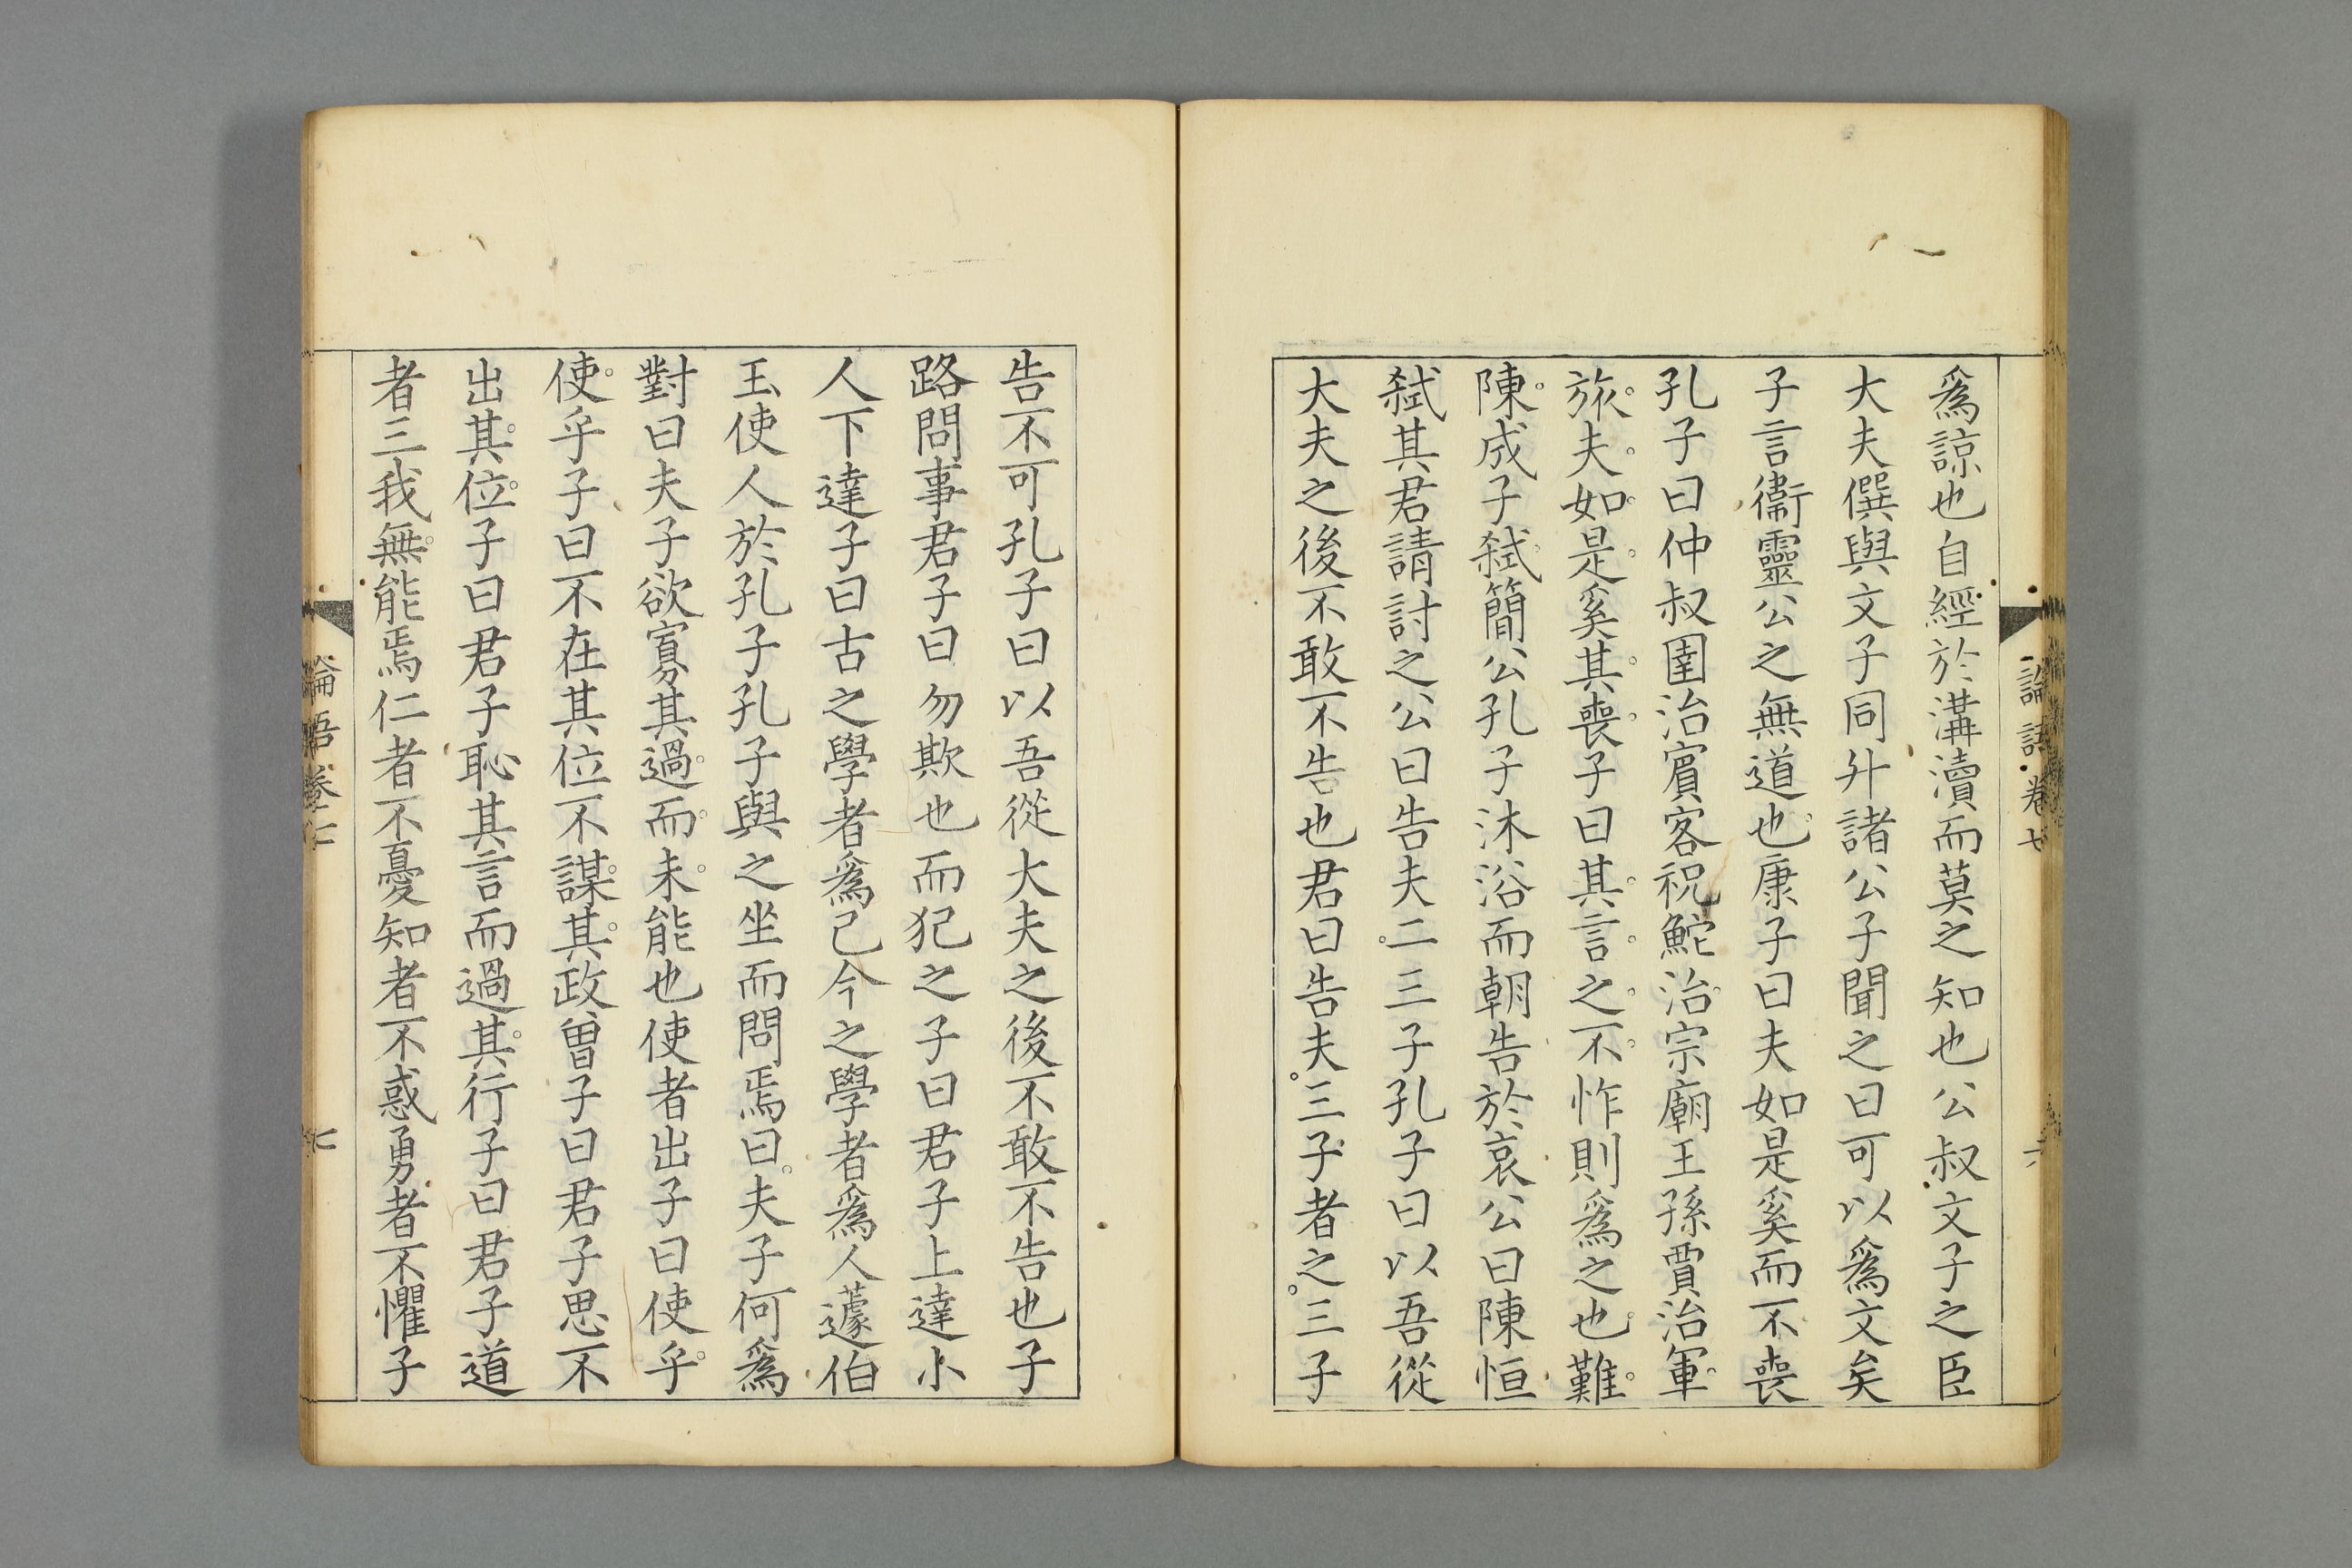 論語 卷七
六
爲諒也自經於溝瀆而莫之知也公叔文子之臣
大夫僎與文子同升諸公子聞之曰可以爲文矣
子言衞靈公之無道也康子曰夫如是奚而不喪
孔子曰仲叔圉治賓客祝鮀治宗廟王孫賈治軍
旅夫如是奚其喪子曰其言之不怍則爲之也難
陳成子弑簡公孔子沐浴而朝告於哀公曰陳恒
弑其君請討之公曰告夫二三子孔子曰以吾從
大夫之後不敢不告也君曰告夫三子者之三子
告不可孔子曰以吾從大夫之後不敢不告也子
路問事君子曰勿欺也而犯之子曰君子上達小
人下達子曰古之學者爲己今之學者爲人蘧伯
玉使人於孔子孔子與之坐而問焉曰夫子何爲
對曰夫子欲寡其過而未能也使者出子曰使乎
使乎子曰不在其位不謀其政曾子曰君子思不
出其位子曰君子恥其言而過其行子曰君子道
者三我無能焉仁者不憂知者不惑勇者不懼子
論語卷七
七